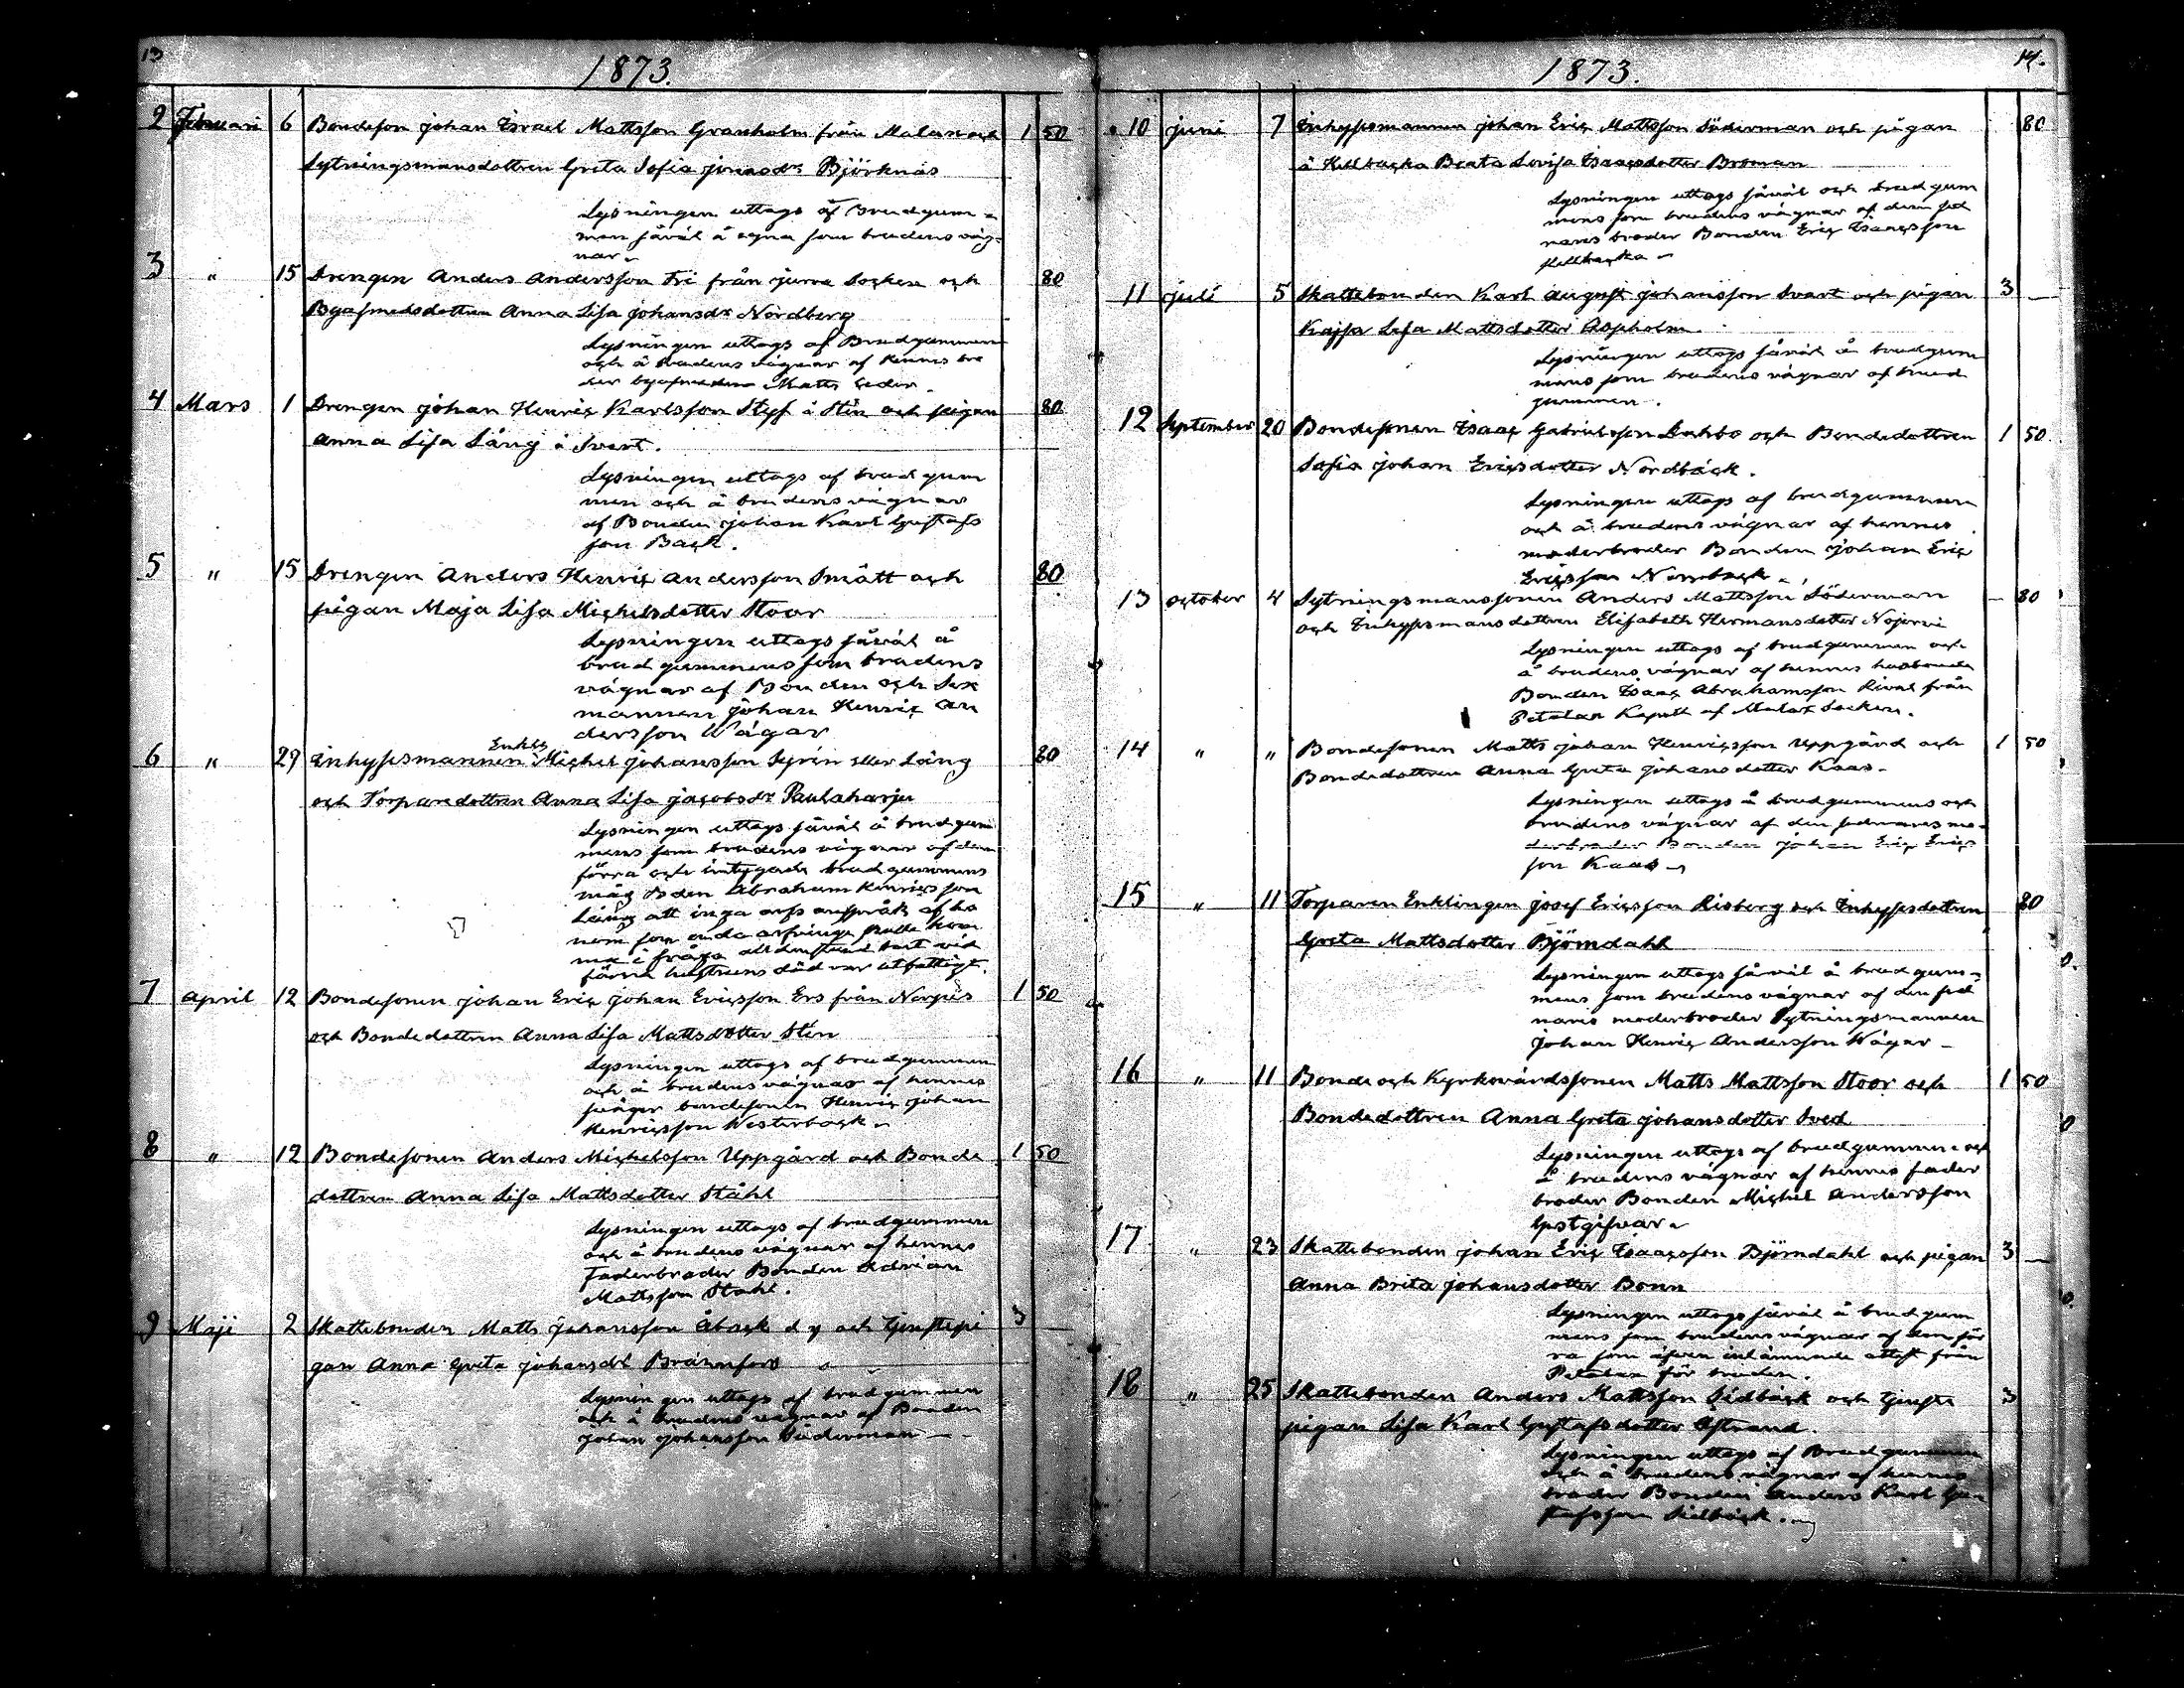 13
1873.
2 Februari 6 Bondeson Johan Israel Mattsson Granholm från Malax och 1 50
Sytningsmansdottren Greta Sofia Jonasdr Björknäs
Lysningen uttogs af Brudgum-
men såväl å egna som brudens väg-
nar
3 " 15 Drengen Anders Andersson Fri från Jurva Socken och 80
Byasmedsdottren Anna Lisa Johansdr Nordberg
Lysningen uttogs af Brudgummen
och å brudens vägnar af hennes bro
der byasmeden Matts
4 Mars 1 Drengen Johan Henric Karlsson Styf å Stin och pigan 80
Anna Lisa Lång å Svart.
Lysningen uttogs af brudgum
men och å brudens vägnar
af Bonden Johan Karl Gustafs
son Back.
5 " 15 Drengen Anders Henric Andersson Smått och 80
pigan Maja Lisa Michelsdotter Stoor
Lysningen uttogs såväl å
brudgummens som brudens
vägnar af Bonden och Sex
mannen Johan Henric An
dersson Wägar
Enkl
6 " 29 Inhyssmannen Michel Johansson Sjerin eller Lång 80
och Torparedottren Anna Lisa Jacobsdr Paulaharju
Lysningen uttogs såväl å brudgum
mens som brudens vägnar af den
förra och intygade brudgummens
måg Bden Abraham Henricsson
Lång att inga arfs anspråk af ho
nom som enda arfvinge skulle kom
ma i fråga alldenstund boet vid
förra hustruns död var utfattigt.
7 April 12 Bondesonen Johan Eric Johan Ericsson Ers från Nerpes 1 50
och Bondedottren Anna Lisa Mattsdotter Stin
Lysningen uttogs af brudgummen
och å brudens vägnar af hennes
svåger bondesonen Henric Johan
Henricsson Westerback
8 " 12 Bondesonen Anders Michelsson Uppgård och Bonde 1 50
dottren Anna Lisa Mattsdotter Ståhl
Lysningen uttogs af brudgummen
och å brudens vägnar af hennes
Faderbroder Bonden Adrian
Mattsson Stahl.
9 Maji 2 Skattebonden Matts Johansson Åback d y och tjenstepi 3 —
gan Anna Greta Johansdr Brännfors
Lysningen uttogs af brudgummen
och å brudens vägnar af Bonden
Johan Johansson Söderman
14.
1873.
10 Juni 7 Inhyssmannen Johan Eric Mattsson Söderman och pigan 80
å Killbacka Beata Lovisa Isaacsdotter Broman
Lysningen uttogs såväl och brudgum
mens som brudens vägnar af den sed
nares broder Bonden Eric Isaacsson
Killbacka
11 Juli 5 Skattebonden Karl August Johansson Svart och pigan 3 —
Kajsa Lisa Mattsdotter Aspholm.
Lysningen uttogs såväl å brudgum
mens som brudens vägnar af brud
gummen.
12 September 20 Bondesonen Isaac Gabrielsson Dahlbo och Bondedottren 1 50
Sofia Johan Ericsdotter Nordbäck.
Lysningen uttogs af brudgummen
och å brudens vägnar af hennes
moderbroder Bonden Johan Eric
Ericsson Norrback
13 October 4 Sytningsmanssonen Anders Mattsson Söderman — 80
och Inhyssmansdottren Elisabeth Hermansdotter Nojervi
Lysningen uttogs af brudgummen och
å brudens vägnar af hennes husbonde
Bonden Isaac Abrahamsson Rival från
Petalax Kapell af Malax Socken.
14 " " Bondesonen Matts Johan Henricsson Uppgård och 1 50
Bondedottren Anna Greta Johansdotter Kaas.
Lysningen uttogs å brudgummens och
brudens vägnar af den sednares mo-
derbroder Bonden Johan Eric Erics
son Kaas
15 " 11 Torparen Enklingen Josef Ericsson Risberg och Inhyssdottren 80
Greta Mattsdotter Björndahl
Lysningen uttogs såväl å brudgum-
mens som brudens vägnar af den sed
nares moderbroder Sytningsmannen
Johan Henric Andersson Wägar
16 " 11 Bonde och Kyrkovärdssonen Matts Mattsson Stoor och 1 50
Bondedottren Anna Greta Johansdotter Sved
Lysningen uttogs af brudgummen och
å brudens vägnar af hennes fader
broder Bonden Michel Andersson
Gästgifvar
17 " 23 Skattebonden Johan Eric Isaacsson Björndahl och pigan 3 —
Anna Brita Johansdotter Bonn
Lysningen uttogs såväl å brudgum
mens som brudens vägnar af den för
ra som äfven inlämnade attest från
Petalax för bruden.
18 " 25 Skattebonden Anders Mattsson Sidbäck och tjenste 3
pigan Lisa Karl Gustafsdotter Åstrand.
Lysningen uttogs af Brudgummen
och å brudens vägnar af hennes
broder Bonden Anders Karl Gus
tafsson Sidbäck.